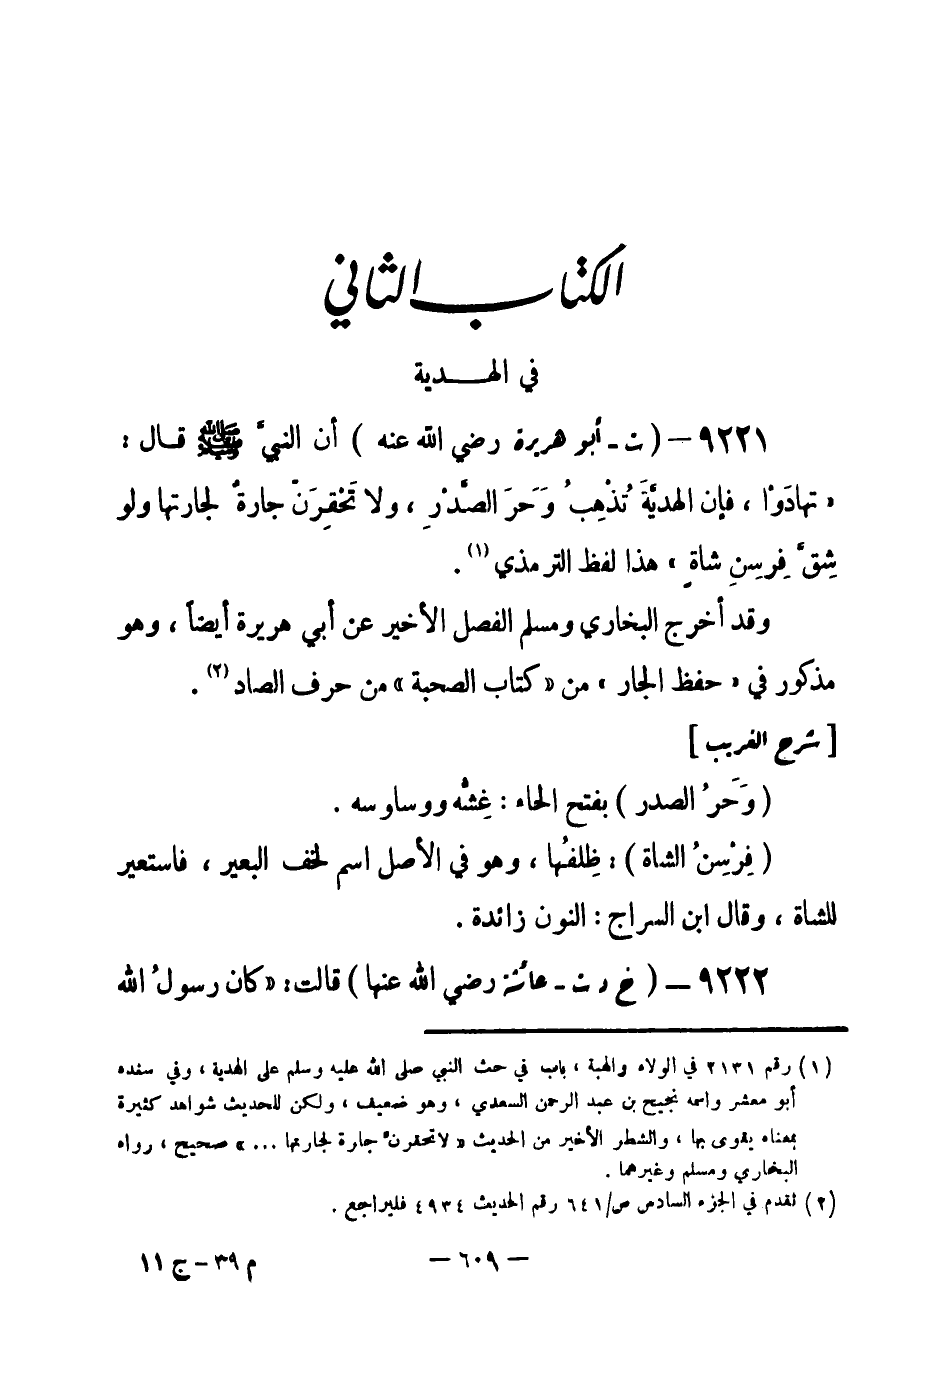 الكتاب الثاني
في الهدية
٩٢٢١ – ( ت - أبو هريرة رضي الله عنه ) أن النبيَّ ﷺ قال :
« تهادَوْا ، فإن الهديَّةَ تُذْهِبُ وَحَرَ الصَّدْرِ ، ولا تَحْقِرَنّ جارةٌ لجارتها ولو
شِقَّ فِرسِنِ شاةٍ » هذا لفظ الترمذي (١) .
وقد أخرج البخاري ومسلم الفصل الأخير عن أبي هريرة أيضاً ، وهو
مذكور في « حفظ الجار » من « كتاب الصحبة » من حرف الصاد (٢) .
[ شرح الغريب ]
( وَحَرُ الصدر ) بفتح الحاء : غِشُّه ووساوسه .
( فِرْسِنُ الشاة ) : ظِلفُها ، وهو في الأصل اسم لخف البعير ، فاستعير
للشاة ، وقال ابن السراج : النون زائدة .
٩٢٢٢ – ( خ د ت - عائشة رضي الله عنها ) قالت : « كان رسولُ الله
(١) رقم ٢١٣١ في الولاء والهبة ، باب في حث النبي صلى الله عليه وسلم على الهدية ، وفي سنده
أبو معشر واسمه نجيح بن عبد الرحمن السعدي ، وهو ضعيف ، ولكن للحديث شواهد كثيرة
بمعناه يقوى بها ، والشطر الأخير من الحديث « لا تحقرنّ جارة لجارتها ... » صحيح ، رواه
البخاري ومسلم وغيرهما .
(٢) تقدم في الجزء السادس ص/٦٤١ رقم الحديث ٤٩٣٤ فليراجع .
– ٦٠٩ –
م ٣٩ – ج ١١